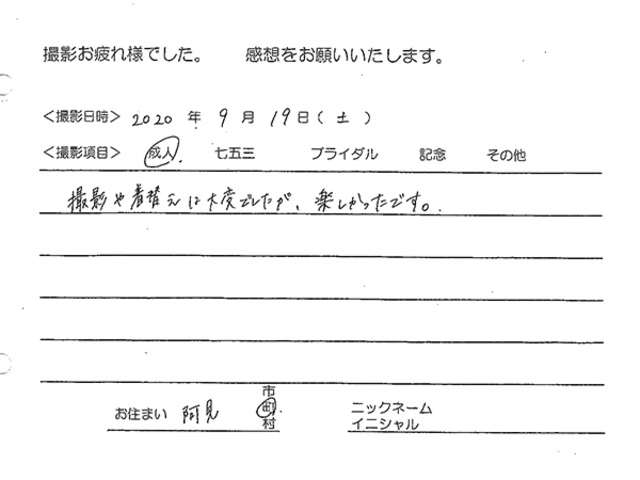 撮影お疲れ様でした。 感想をお願いいたします。
＜撮影日時＞ 2020 年 9 月 19日（ 土 ）
＜撮影項目＞ 成人 七五三 ブライダル 記念 その他
撮影や着替えは大変でしたが、楽しかったです。
お住まい 阿見 市 町 村
ニックネーム
イニシャル